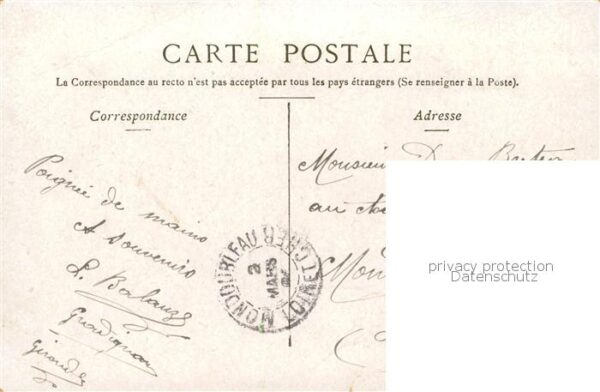 CARTE POSTALE
La Correspondance au recto n'est pas acceptée par tous les pays étrangers (Se renseigner à la Poste).
Correspondance
Poignée de mains
et souvenirs
Gradignan
Gironde
Adresse
Monsieur D
au
MONDOUBLEAU LOIR-ET-CHER
2
MARS
privacy protection
Datenschutz